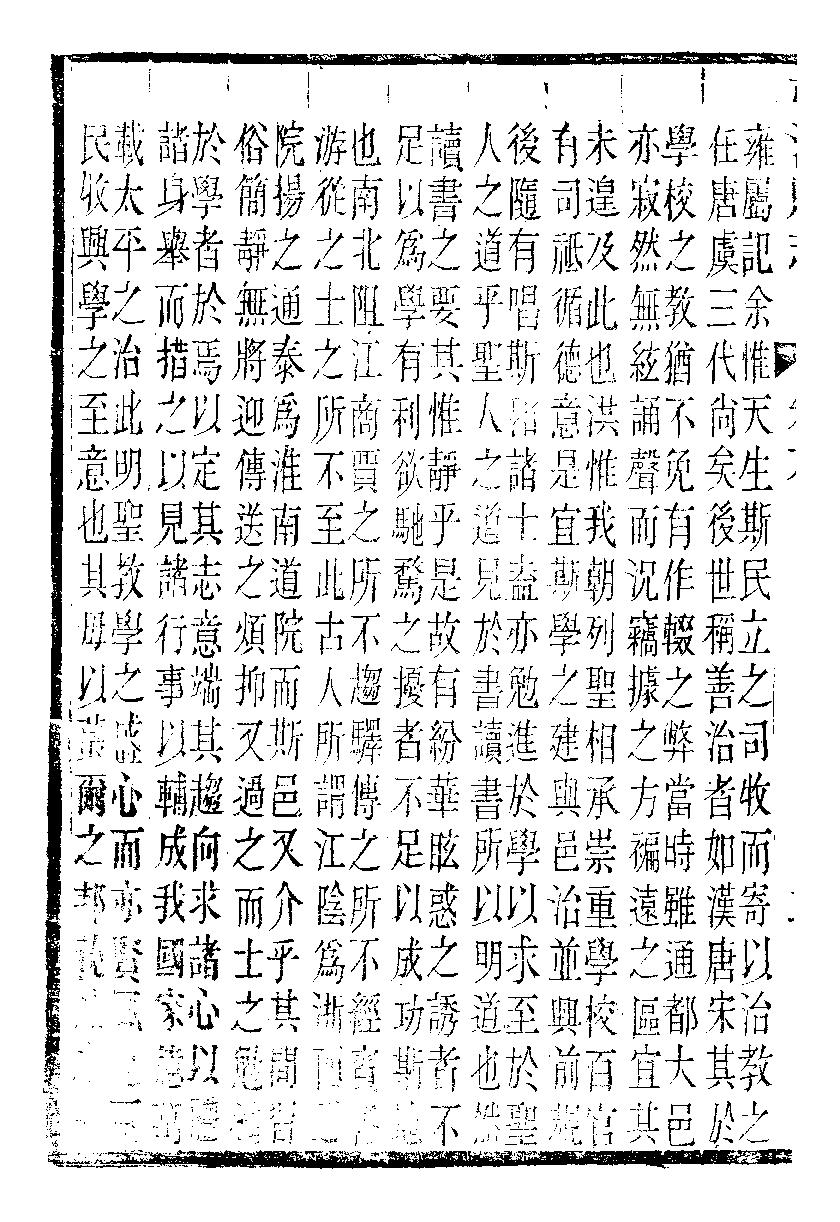 雍屬記余惟天生斯民立之司牧而寄以治教之
任唐虞三代尚矣後世稱善治者如漢唐宋其於
學校之教猶不免有作輟之弊當時雖通都大邑
亦寂然無絃誦聲而況竊據之方褊遠之區宜其
未遑及此也洪惟我朝列聖相承崇重學校百官
有司祗循德意是宜斯學之建與邑治並興前規
後隨有唱斯諸士盍亦勉進於學以求至於聖
人之道乎聖人之道見於書讀書所以明道也然
讀書之要其惟靜乎是故有紛華眩惑之誘者不
足以爲學有利欲馳騖之擾者不足以成功斯
也南北阻江商賈之所不趨驛傳之所不經
游從之士之所不至此古人所謂江陰爲浙
院揚之通泰爲淮南道院而斯邑又介乎其間
俗簡靜無將迎傳送之煩抑又過之而士之勉
於學者於焉以定其志意端其趨向求諸心以
諸身舉而措之以見諸行事以輔成我國家
載太平之治此明聖教學之盛心而亦賢
民牧興學之至意也其毋以爾之邦